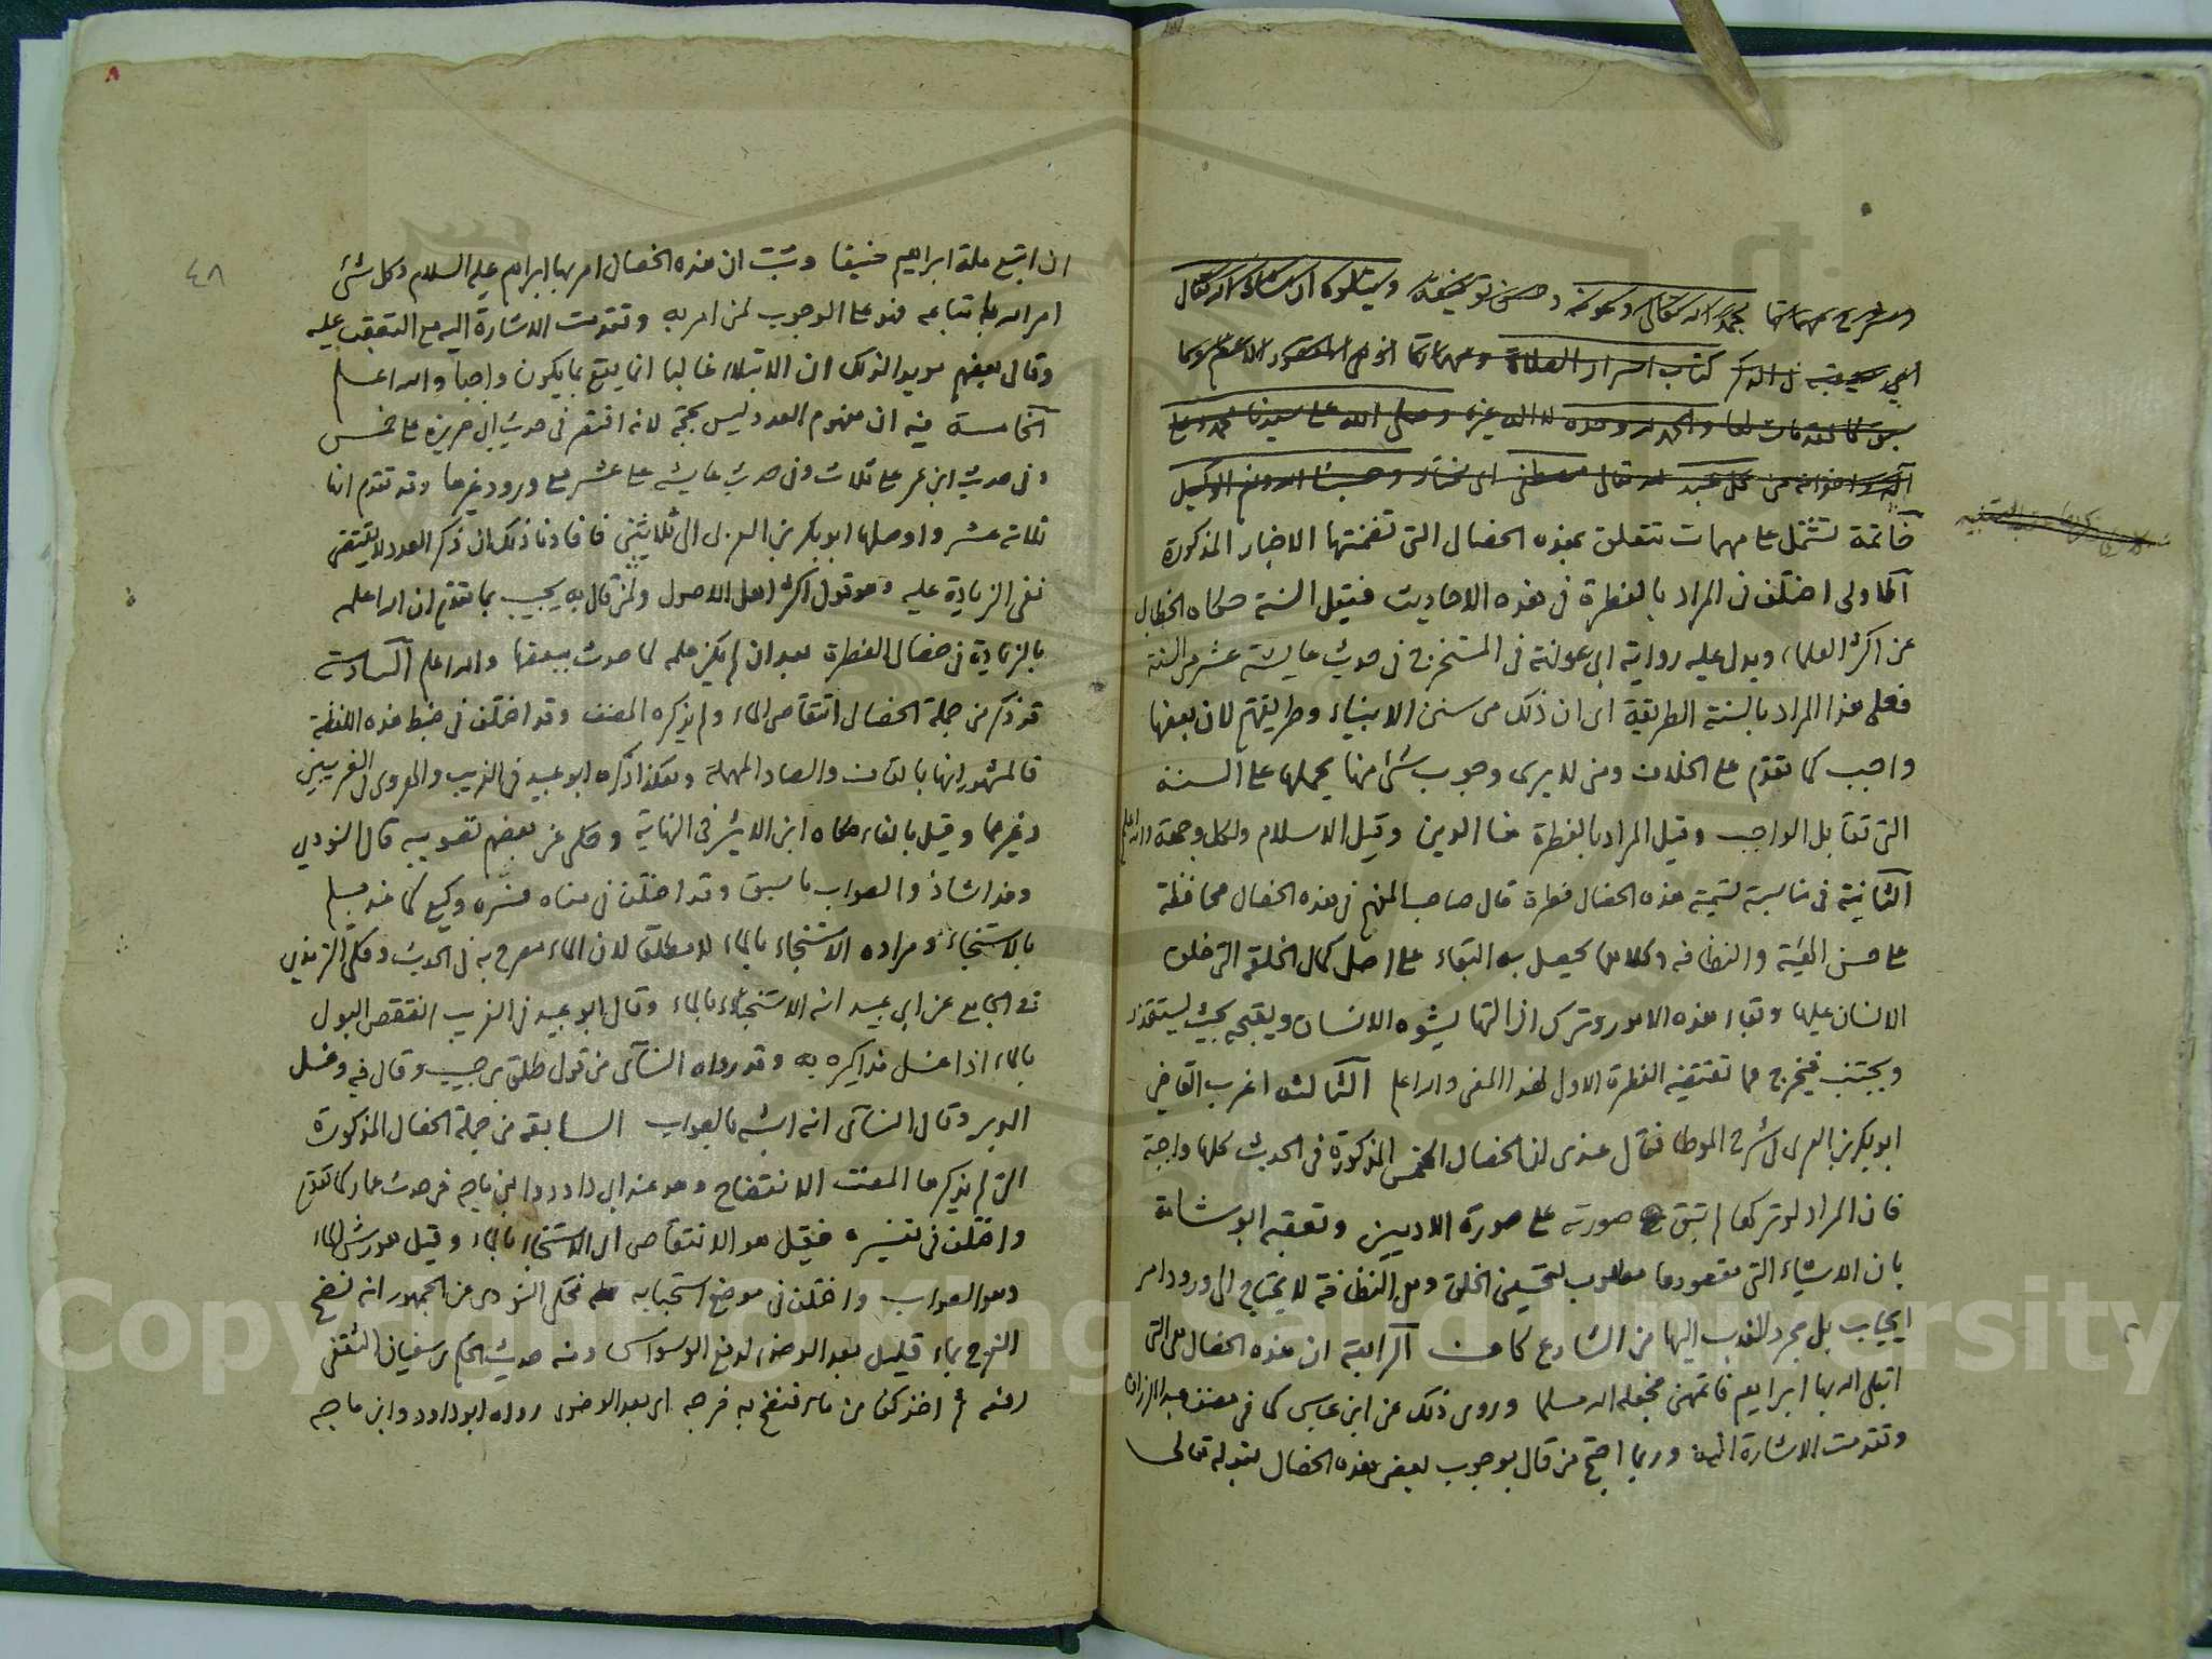 خاتمة تشتمل على مهمات تتعلق بهذه الخصال التى تضمنتها الاخبار المذكورة
الاولى اختلف فى المراد بالفطرة فى هذه الاحاديث فقيل السنة حكاه الخطابى
عن اكثر العلماء ويدل عليه رواية ابى عوانة فى المستخرج فى حديث عايشة عشر من السنة
فعلى هذا المراد بالسنة الطريقة اى ان ذلك من سنن الانبياء وطريقتهم لان بعضها
واجب كما تقدم على الخلاف ومن لا يرى وجوب شئ منها يحملها على السنة
التى تقابل الواجب وقيل المراد بالفطرة هنا الدين وقيل الاسلام ولكل وجهة والله اعلم
الثانية فى مناسبة تسمية هذه الخصال فطرة قال صاحب المفهم فى هذه الخصال محافظة
على حسن الهيئة والنظافه وكلاهما يحصل به البقاء على اصل كمال الخلقة التى خلق
الانسان عليها وبقاء هذه الامور وترك ازالتها يشوه الانسان ويقبحه بحيث يستقذر
ويجتنب فيخرج عما تقتضيه الفطرة الاولى لهذا المعنى والله اعلم الثالثه اغرب القاضي
ابو بكر بن العربى فى شرح الموطا فقال عندى ان الخصال الخمس المذكورة فى الحديث كلها واجبة
فان المراد لو تركها لم تبق صورته على صورة الادميين وتعقبه ابو شامة
بان الاشياء التى مقصودها مطلوب لتحسين الخلق وهى النظافة لا يحتاج الى ورود امر
ايجاب بل مجرد الندب اليها من الشارع كاف الرابعة ان هذه الخصال هى التى
ابتلى الله بها ابراهيم فاتمهن فجعله الله مسلما وروى ذلك عن ابن عباس كما فى مصنف عبد الرزاق
وتقدمت الاشارة اليه وربما احتج من قال بوجوب بعض هذه الخصال بقوله تعالى
٤٨
ان اتبع ملة ابراهيم حنيفا وثبت ان هذه الخصال امر بها ابراهيم عليه السلام وكل شئ
امر الله باتباعه فهو على الوجوب لمن امر به وتقدمت الاشارة اليه مع التعقب عليه
وقال بعضهم مويدا لذلك ان الابتلاء غالبا انما يقع بما يكون واجبا والله اعلم
الخامسة فيه ان مفهوم العدد ليس بحجة لانه اقتصر فى حديث ابى هريرة على خمس
وفى حديث ابن عمر على ثلاث وفى حديث عايشه على عشر مع ورود غيرها وقد تقدم انها
ثلاثة عشر واوصلها ابو بكر بن العربى الى ثلاثين فافادنا ذلك ان ذكر العدد لا يقتضى
نفى الزيادة عليه وهو قول اكثر اهل الاصول ولمن قال به يجيب بما تقدم ان الله اعلمه
بالزيادة فى خصال الفطرة بعد ان لم يكن علمه لما حدث ببعضها والله اعلم السادسة
قد ذكر من جملة الخصال انتقاص الماء ولم يذكره المصنف وقد اختلف فى ضبط هذه اللفظة
فالمشهور انها بالقاف والصاد المهملة وهكذا ذكره ابو عبيد فى الغريب والهروى فى الغريبين
وغيرهما وقيل بالفاء حكاه ابن الاثير فى النهاية وحكى عن بعضهم تصويبه قال النووي
وهذا شاذ والصواب ما سبق وقد اختلف فى معناه ففسره وكيع كما عند مسلم
بالاستنجاء ومراده الاستنجاء بالماء لا مطلقا لان الماء مصرح به فى الحديث وحكى الترمذي
فى الجامع عن ابى عبيد انه الاستنجاء بالماء وقال ابو عبيد فى الغريب انتقص البول
بالماء اذا غسل مذاكيره به وقد رواه النسآى من قول طلق بن حبيب وقال فيه وغسل
الدبر وقال النسآى انه اشبه بالصواب السابعة من جملة الخصال المذكورة
التى لم يذكرها المصنف الانتضاح وهو عند ابى داود وابن ماجه فى حديث عمار كما تقدم
واختلف فى تفسيره فقيل هو الانتقاص اى الاستنجاء بالماء وقيل هو رش الماء
وهو الصواب واختلف فى موضع استحبابه فحكى النووى عن الجمهور انه نضح
الفرج بماء قليل بعد الوضوء لدفع الوسواس ومنه حديث الحكم بن سفيان الثقفى
رفعه ثم اخذ كفا من ماء فنضح به فرجه اى بعد الوضوء رواه ابو داود وابن ماجه
Copyright © King Saud University